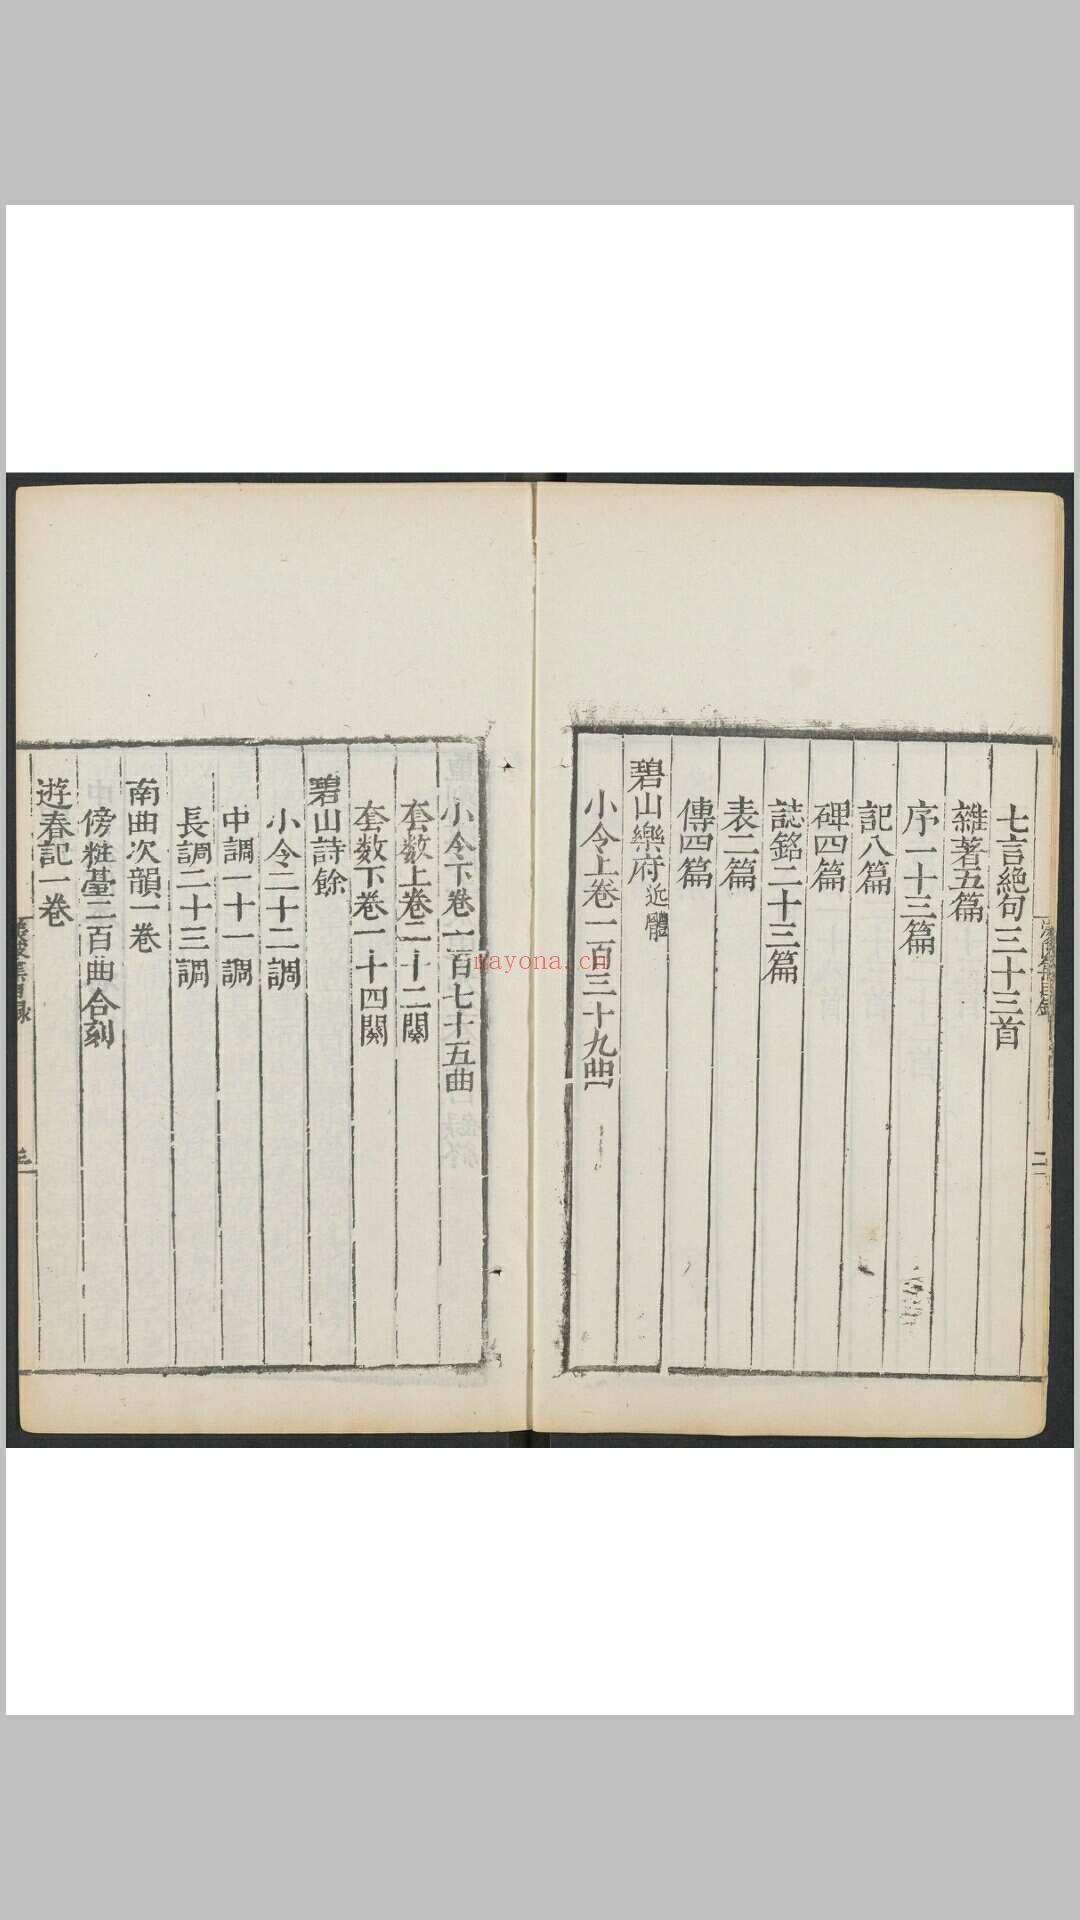 七言絶句三十三首
雜著五篇
序一十三篇
記八篇
碑四篇
誌銘二十三篇
表二篇
傳四篇
碧山樂府近體
小令上卷一百三十九曲
小令下卷一百七十五曲
套數上卷二十二闋
套數下卷一十四闋
碧山詩餘
小令二十二調
中調一十一調
長調二十三調
南曲次韻一卷
傍粧臺二百曲合刻
遊春記一卷
nayona.cn